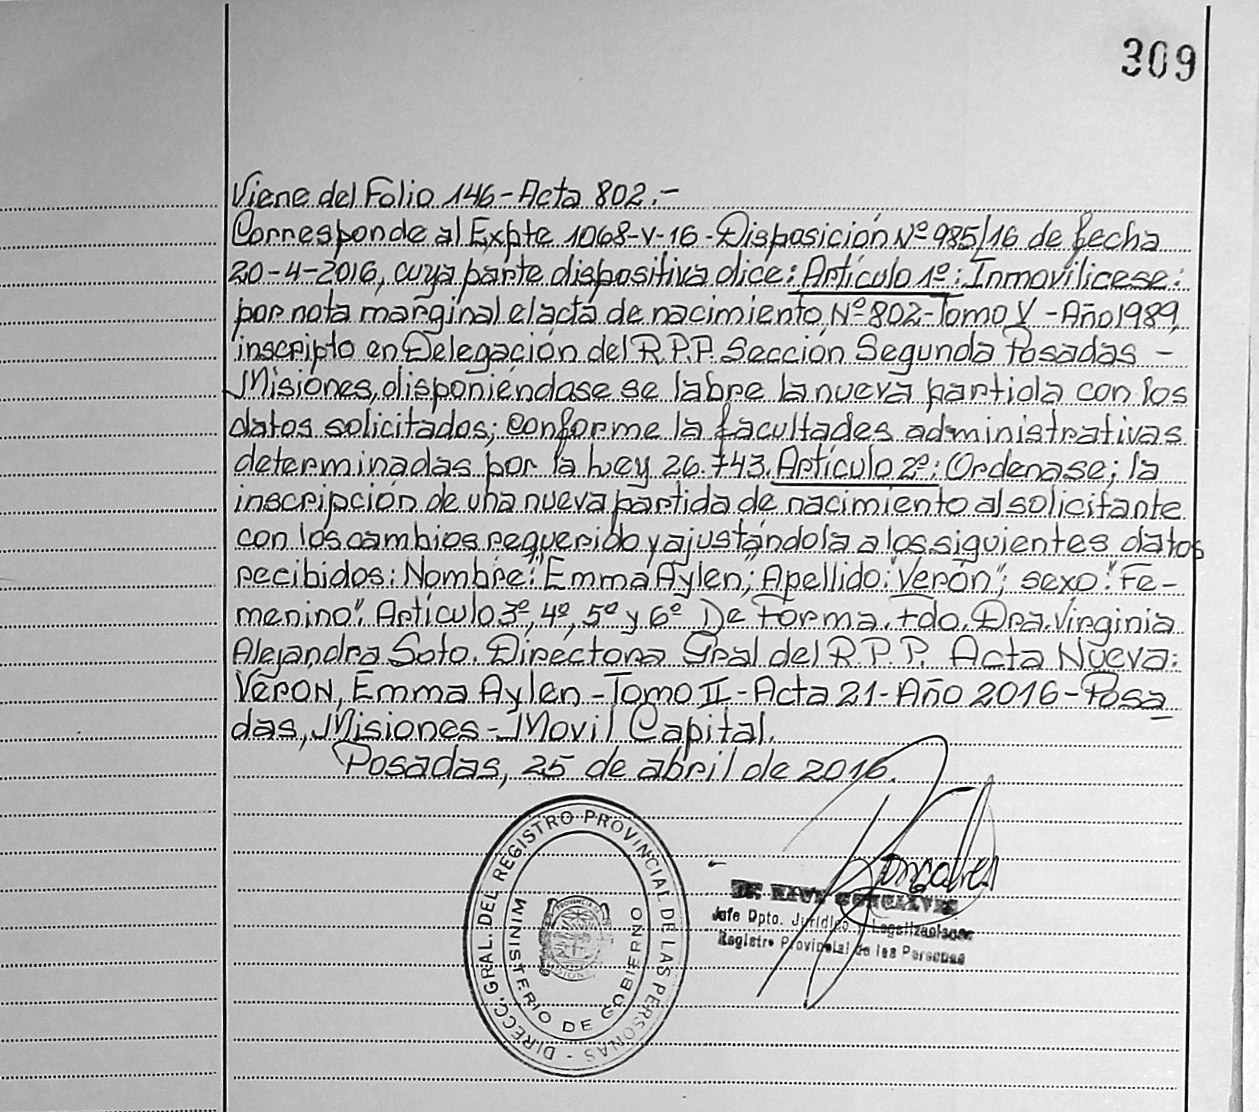 309
Viene del Folio 146 - Acta 802.-
Corresponde al Expte 1068-V-16 - Disposición Nº 985/16 de fecha
20-4-2016, cuya parte dispositiva dice: Artículo 1º: Inmovilicese:
por nota marginal el acta de nacimiento Nº 802-Tomo V - Año 1989,
inscripto en Delegación del R.P.P. Sección Segunda Posadas -
Misiones, disponiéndose se labre la nueva partida con los
datos solicitados; conforme la facultades administrativas
determinadas por la Ley 26.743. Artículo 2º: Ordenase; la
inscripción de una nueva partida de nacimiento al solicitante
con los cambios requerido y ajustándola a los siguientes datos
recibidos: Nombre: "Emma Aylen"; Apellido: "Verón"; sexo: "Fe-
menino". Artículo 3º, 4º, 5º y 6º De Forma. Fdo. Dra. Virginia
Alejandra Soto. Directora Gral del R.P.P. Acta Nueva:
VERON, Emma Aylen - Tomo II - Acta 21 - Año 2016 - Posa
das, Misiones - Movil Capital.
Posadas, 25 de abril de 2016.
DIRECC. GRAL. DEL REGISTRO PROVINCIAL DE LAS PERSONAS -
MINISTERIO DE GOBIERNO
Gonçalves
Dr. RAUL GONCALVES
Jefe Dpto. Jurídico y Legalizaciones
Registro Provincial de las Personas